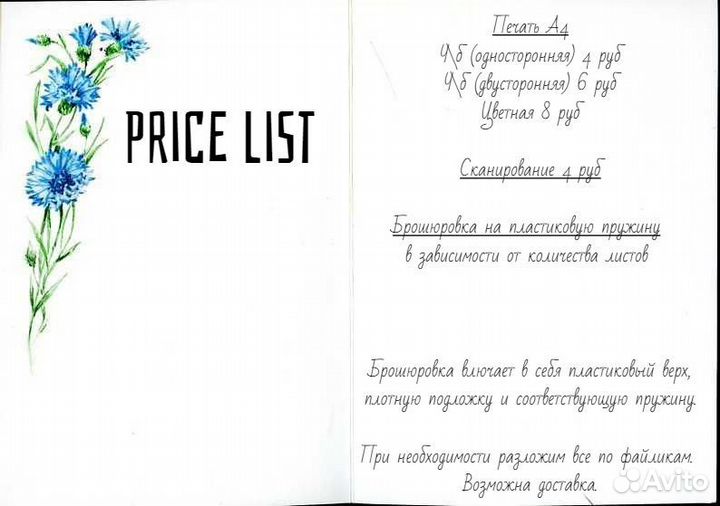 PRICE LIST
Печать А4
Ч\б (односторонняя) 4 руб
Ч\б (двусторонняя) 6 руб
Цветная 8 руб
Сканирование 4 руб
Брошюровка на пластиковую пружину
в зависимости от количества листов
Брошюровка влючает в себя пластиковый верх,
плотную подложку и соответствующую пружину.
При необходимости разложим все по файликам.
Возможна доставка.
Avito